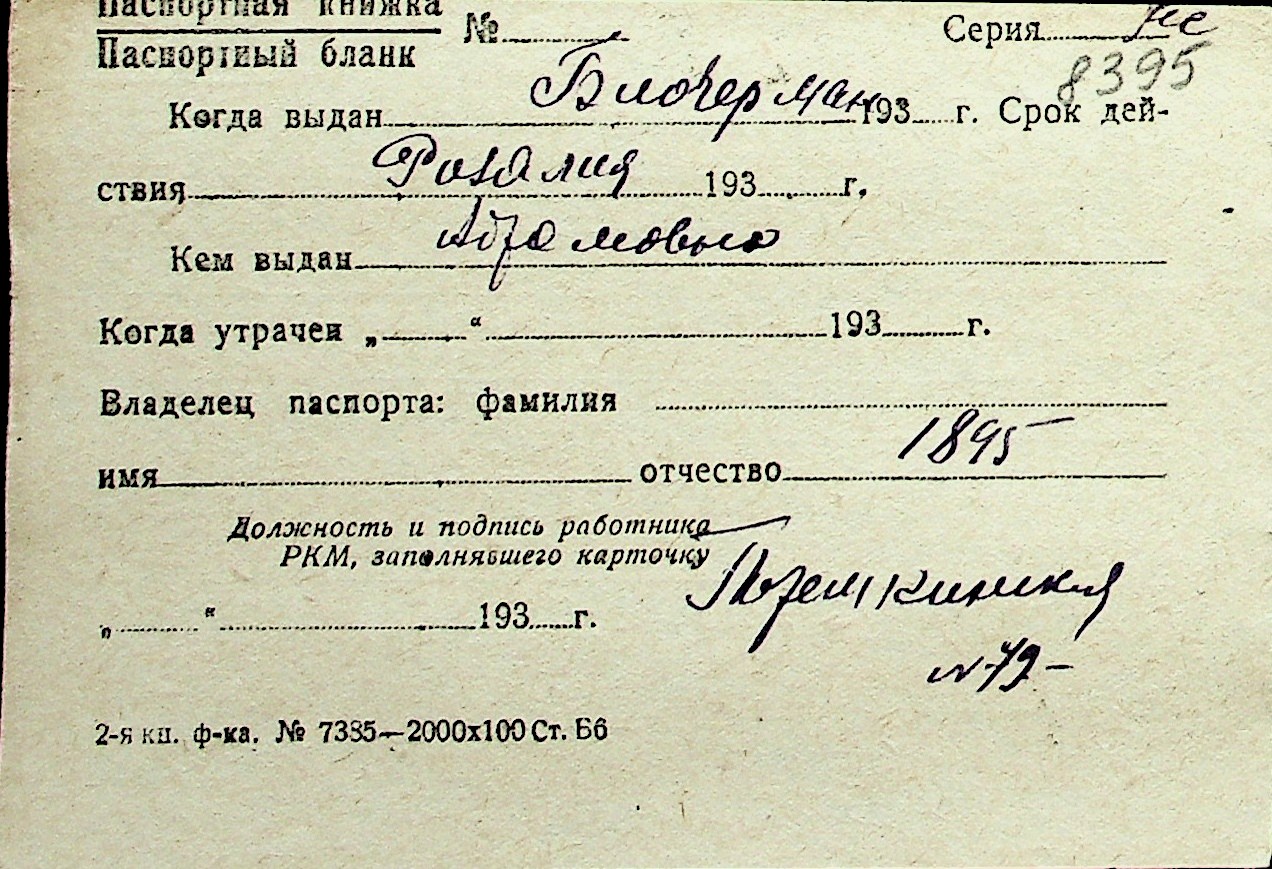 Паспортная книжка
Паспортный бланк № Серия
8395
Когда выдан Блочерман 193 г. Срок дей-
ствия Розалия 193 г.
Кем выдан Абрамовна
Когда утрачен „ “ 193 г.
Владелец паспорта: фамилия
имя отчество 1895
Должность и подпись работника
РКМ, заполнявшего карточку
„ “ 193 г.
N 79-
2-я кн. ф-ка. № 7385—2000х100 Ст. Б6